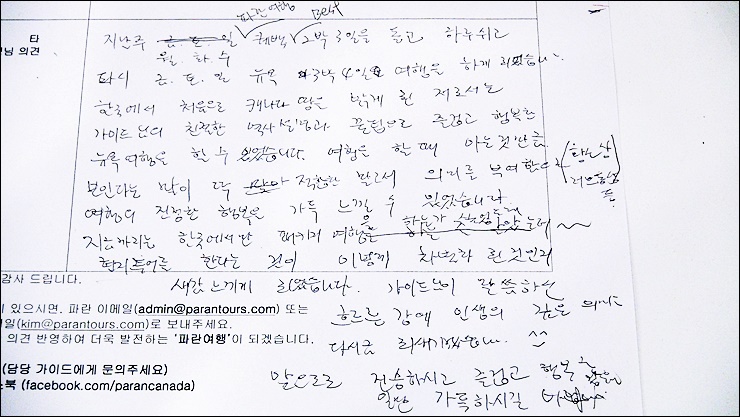 파란여행 Best
지난주 금.토.일 퀘백 2박 3일을 돌고 하루쉬고
월.화.수
다시 금.토.일 뉴욕 3박 4일 여행을 하게 되었습니다.
한국에서 처음으로 캐나다 땅을 밟게 된
가이드님의 친절한 역사 설명과 꿀팁으로 즐겁고 행복한
뉴욕여행을 할 수 있었습니다. 여행을 할 때 아는것만큼
보인다는 말이 딱 적합한 말로서 의미를 부여한
여행의 진정한 행복을 가득 느낄 수 있었습니다.
지금까지는 한국에서만 패키지 여행을
현지투어를 한다는 것이 이렇게 차별화 된 것인지
새삼 느끼게 되었습니다. 가이드님이 말씀하신
흐르는 강에 인생의 깊은 의미도
다시금 되새기겠습니다... ^^
앞으로도 건승하시고 즐겁고 행복한
일만 가득하시길
타
님 의견
감사 드립니다.
이 있으시면. 파란 이메일(admin@parantours.com) 또는
일(kim@parantours.com)로 보내주세요.
의견 반영하여 더욱 발전하는 '파란여행'이 되겠습니다.
(담당 가이드에게 문의주세요)
스북 (facebook.com/parancanada)